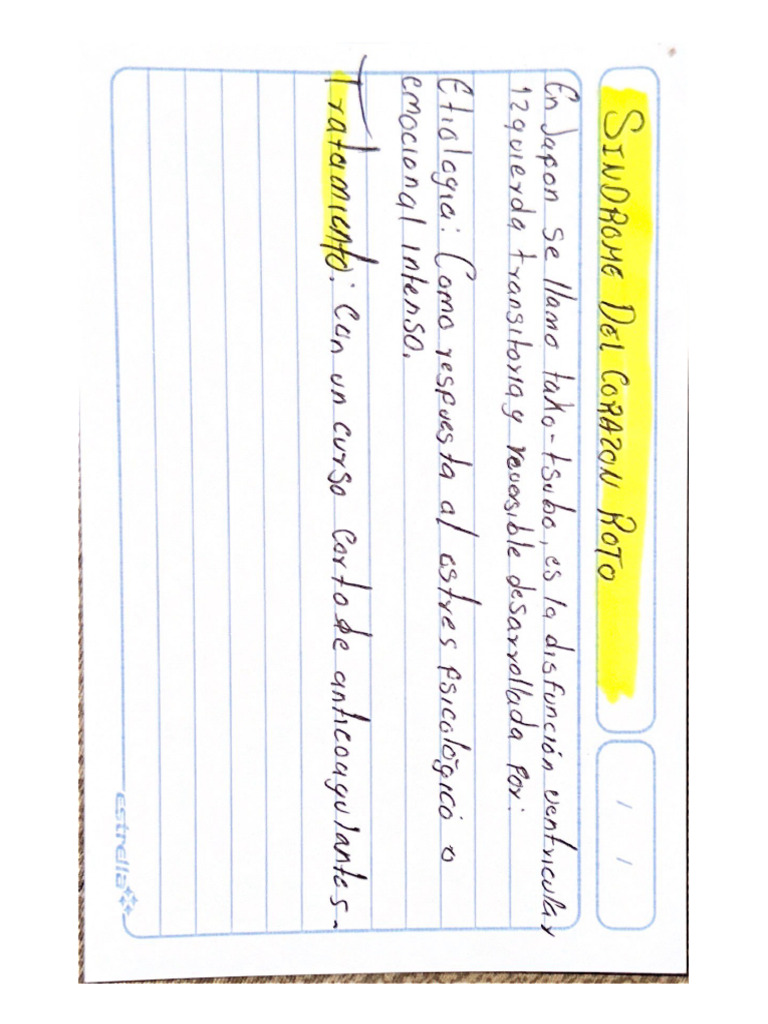 SINDROME DEL CORAZON ROTO
/ /
En Japon se llama tako-tsubo, es la disfunción ventricular
izquierda transitoria y reversible desarrollada por:
Etiologia: Como respuesta al estres psicológico o
emocional intenso.
Tratamiento: Con un curso corto de anticoagulantes.
estrella